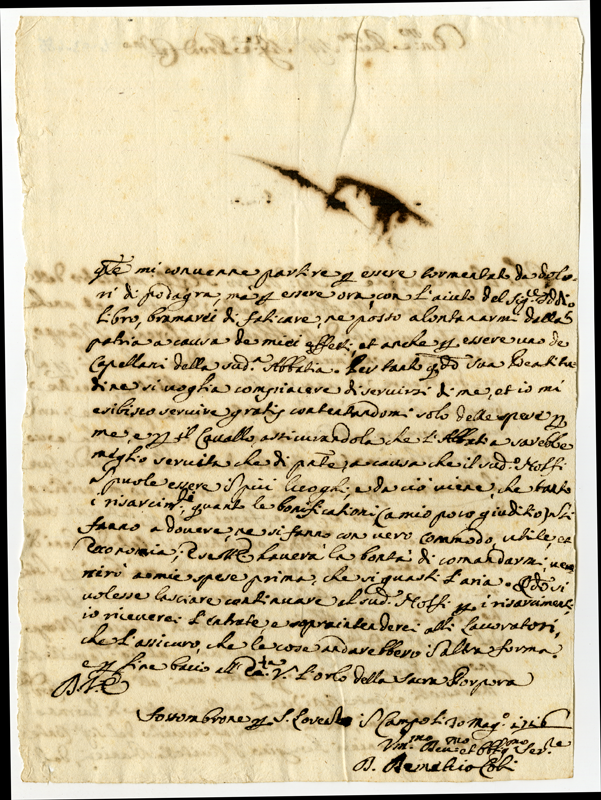 mi convenne partire p essere tormentato da dolo-
ri di podagra, mà p essere ora con l'aiuto del Sig.re Iddio
libro, bramarei di faticare, ne posso alontanarmi dalla
patria a causa de miei effetti, et anche p essere uno de
Capellani della sud.a Abbatia. Per tanto q.do sua Beatitu-
dine si voglia compiacere di servirsi di me, et io mi
esibisco servire gratis contentandomi solo delle spese p
me, e p il Cavallo, assicurandola che l'Abbatia sarebbe
meglio servita che di pnte, a causa che il sud.o Noffi
puole essere in piu luoghi, e da ciò viene, che tanto
i risarcim.ti, quanto le bonificationi (a mio poco giuditio) non si
fanno a dovere, ne si fanno con vero commodo, utile, ed
economia; havera la bontà di comandarmi, ve-
nirò a mie spese prima, che si guasti l'aria. Q.do si
volesse lasciare continuare al sud.o Noffi p i risarcimenti
io riceverei l'entrate e sopraintenderei alli Lavoratori,
che l'assicuro, che le cose andarebbero in altra forma.
e p fine bacio all' V.ra l'orlo della Sacra Porpora
Fossombrone p S. Lorenzo in Campo li 30 Mag.o 1726
Um.mo Dev.mo et Obb.mo Ser.re